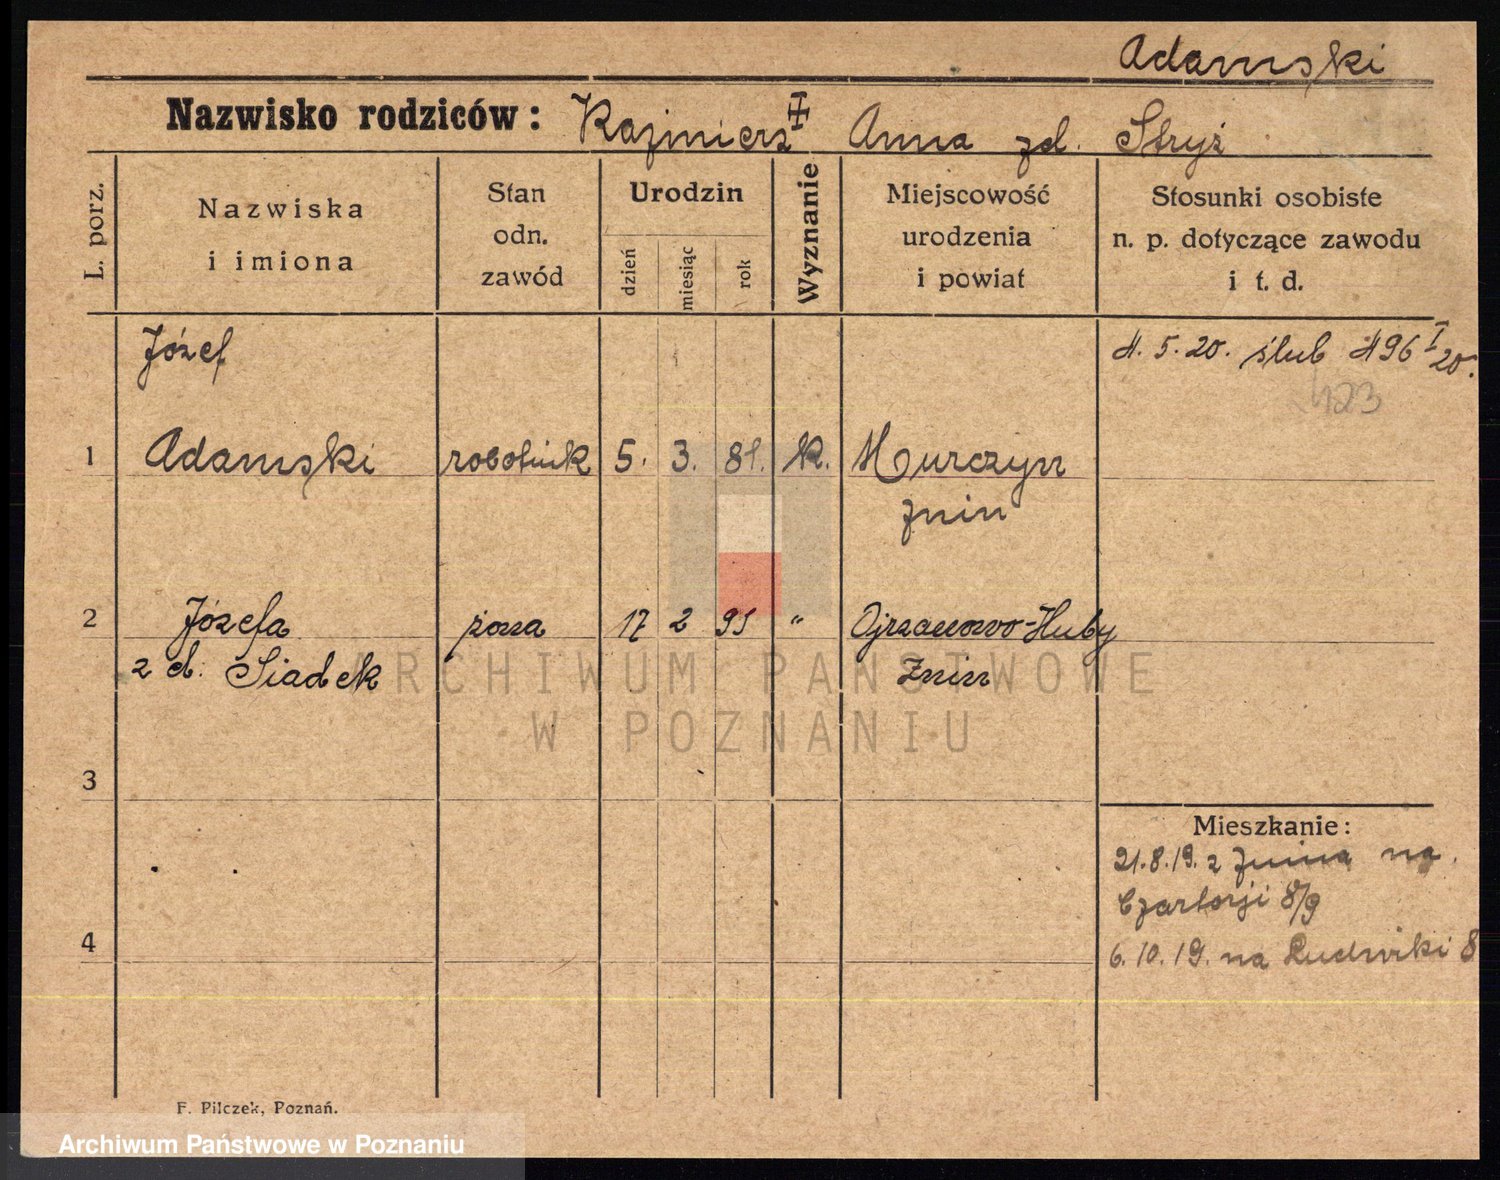 Adamski
Nazwisko rodziców: Kazimierz Anna zd. Stryż
L. porz.
Nazwiska
i imiona
Stan
odn.
zawód
Urodzin
dzień
miesiąc
rok
Wyznanie
Miejscowość
urodzenia
i powiat
Stosunki osobiste
n. p. dotyczące zawodu
i t. d.
Józef
4. 5. 20. ślub 496 I 20.
423
1 Adamski robotnik 5. 3. 81. k. Murczyn
Żnin
2 Józefa żona 17 2 95 " Ojrzanowo-Huby
z d. Siadek Żnin
ARCHIWUM PAŃSTWOWE
W POZNANIU
3
Mieszkanie:
21.8.19. z Żnina na
Czartorji 8/9
4
6. 10. 19. na Ludwiki 8
F. Pilczek, Poznań.
Archiwum Państwowe w Poznaniu